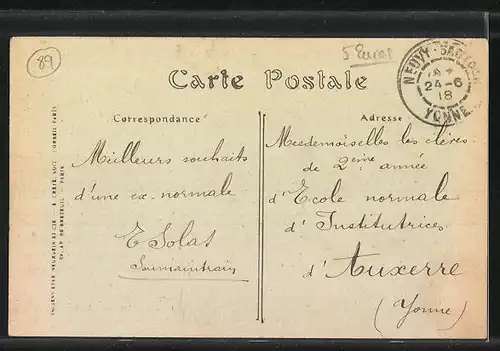 89
5 Euros
Carte Postale
NEUVY-SAUTOUR
24-6
18
YONNE
Correspondance
Adresse
Meilleurs souhaits
d'une ex-normale
E Solas
Soumaintrain
Mesdemoiselles les élèves
de 2ème année
d'Ecole normale
d'Institutrices
d'Auxerre
(Yonne)